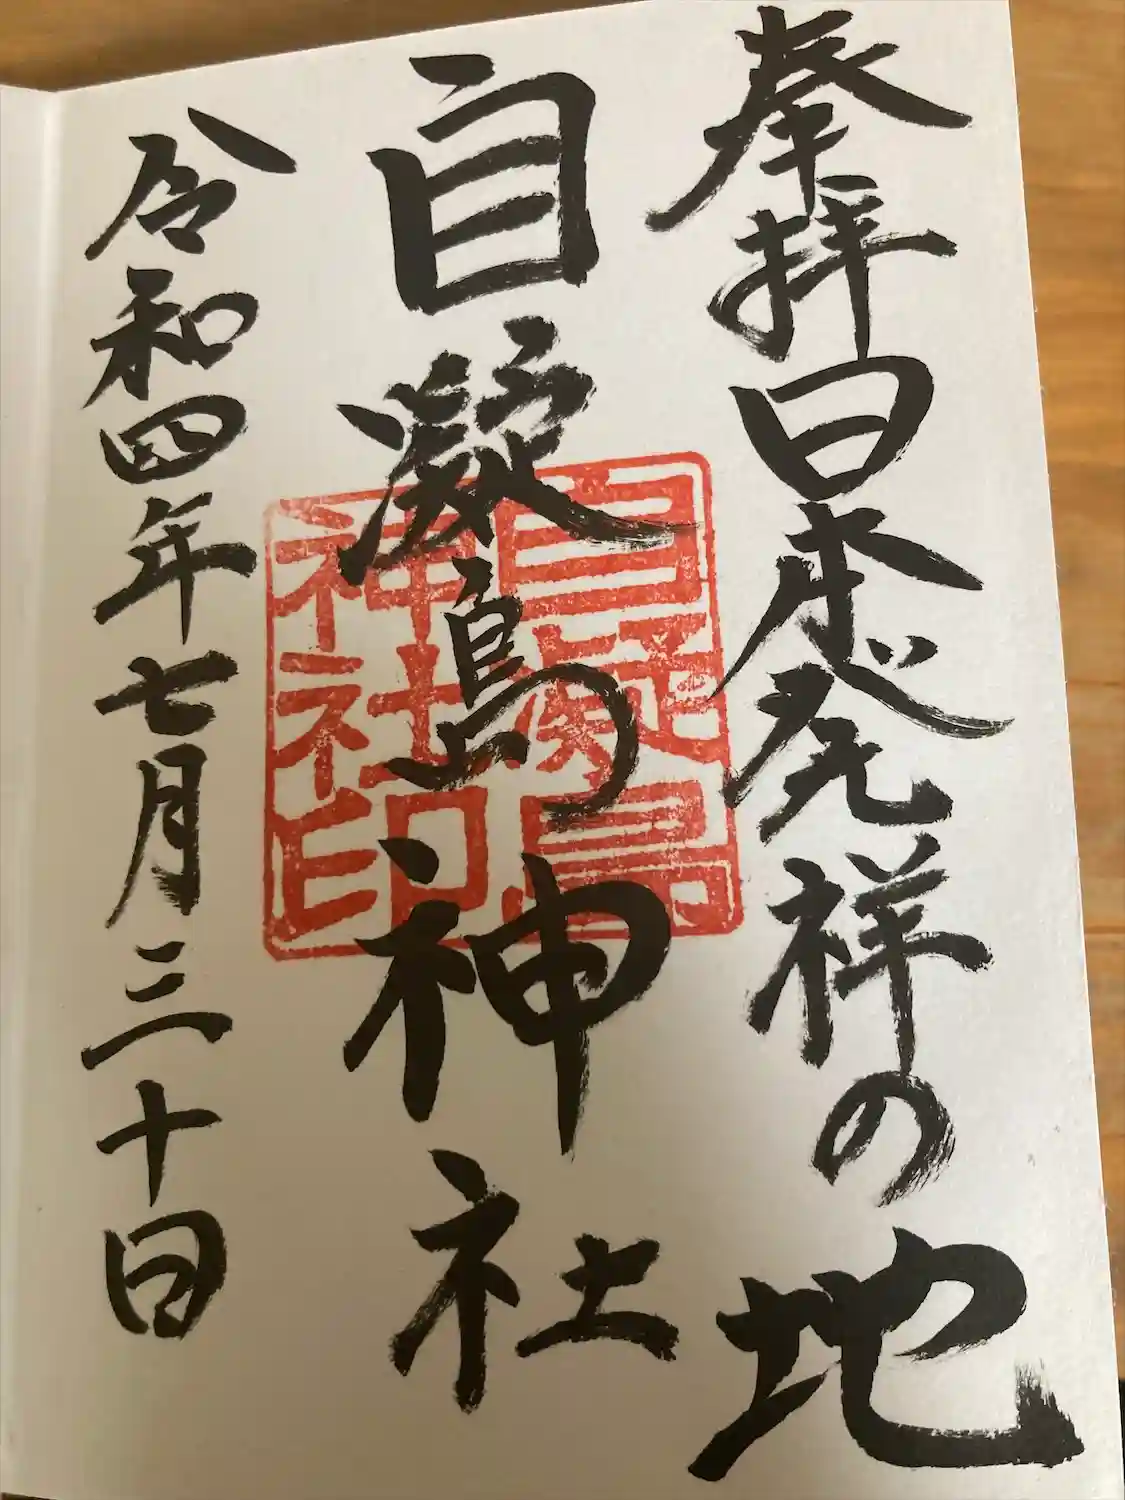 奉拝日本発祥の地
自凝島神社
令和四年七月三十日
自凝島
神社印